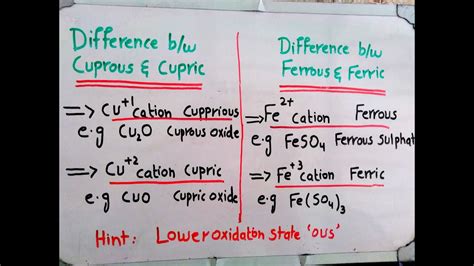 Difference b/w
Cuprous & Cupric
=> Cu+1 cation Cupprious
e.g Cu2O cuprous oxide
=> Cu+2 cation Cupric
e.g CuO cupric oxide
Difference b/w
Ferrous & Ferric
=> Fe2+ cation Ferrous
e.g FeSO4 Ferrous Sulphat
=> Fe+3 cation Ferric
e.g Fe(SO4)3
Hint: Lower oxidaton state 'ous'